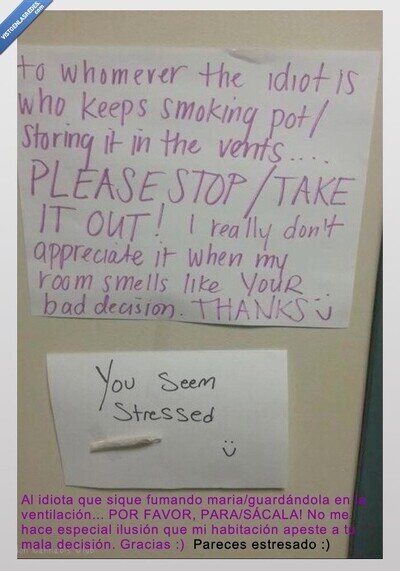 VISTOENLASREDES.com
to whomever the idiot is
who keeps smoking pot/
storing it in the vents....
PLEASE STOP/TAKE
IT OUT! I really don't
appreciate it when my
room smells like YOUR
bad decision. THANKS :)
You Seem
Stressed
:)
Al idiota que sique fumando maria/guardándola en la
ventilación... POR FAVOR, PARA/SÁCALA! No me
hace especial ilusión que mi habitación apeste a tu
mala decisión. Gracias :) Pareces estresado ;)